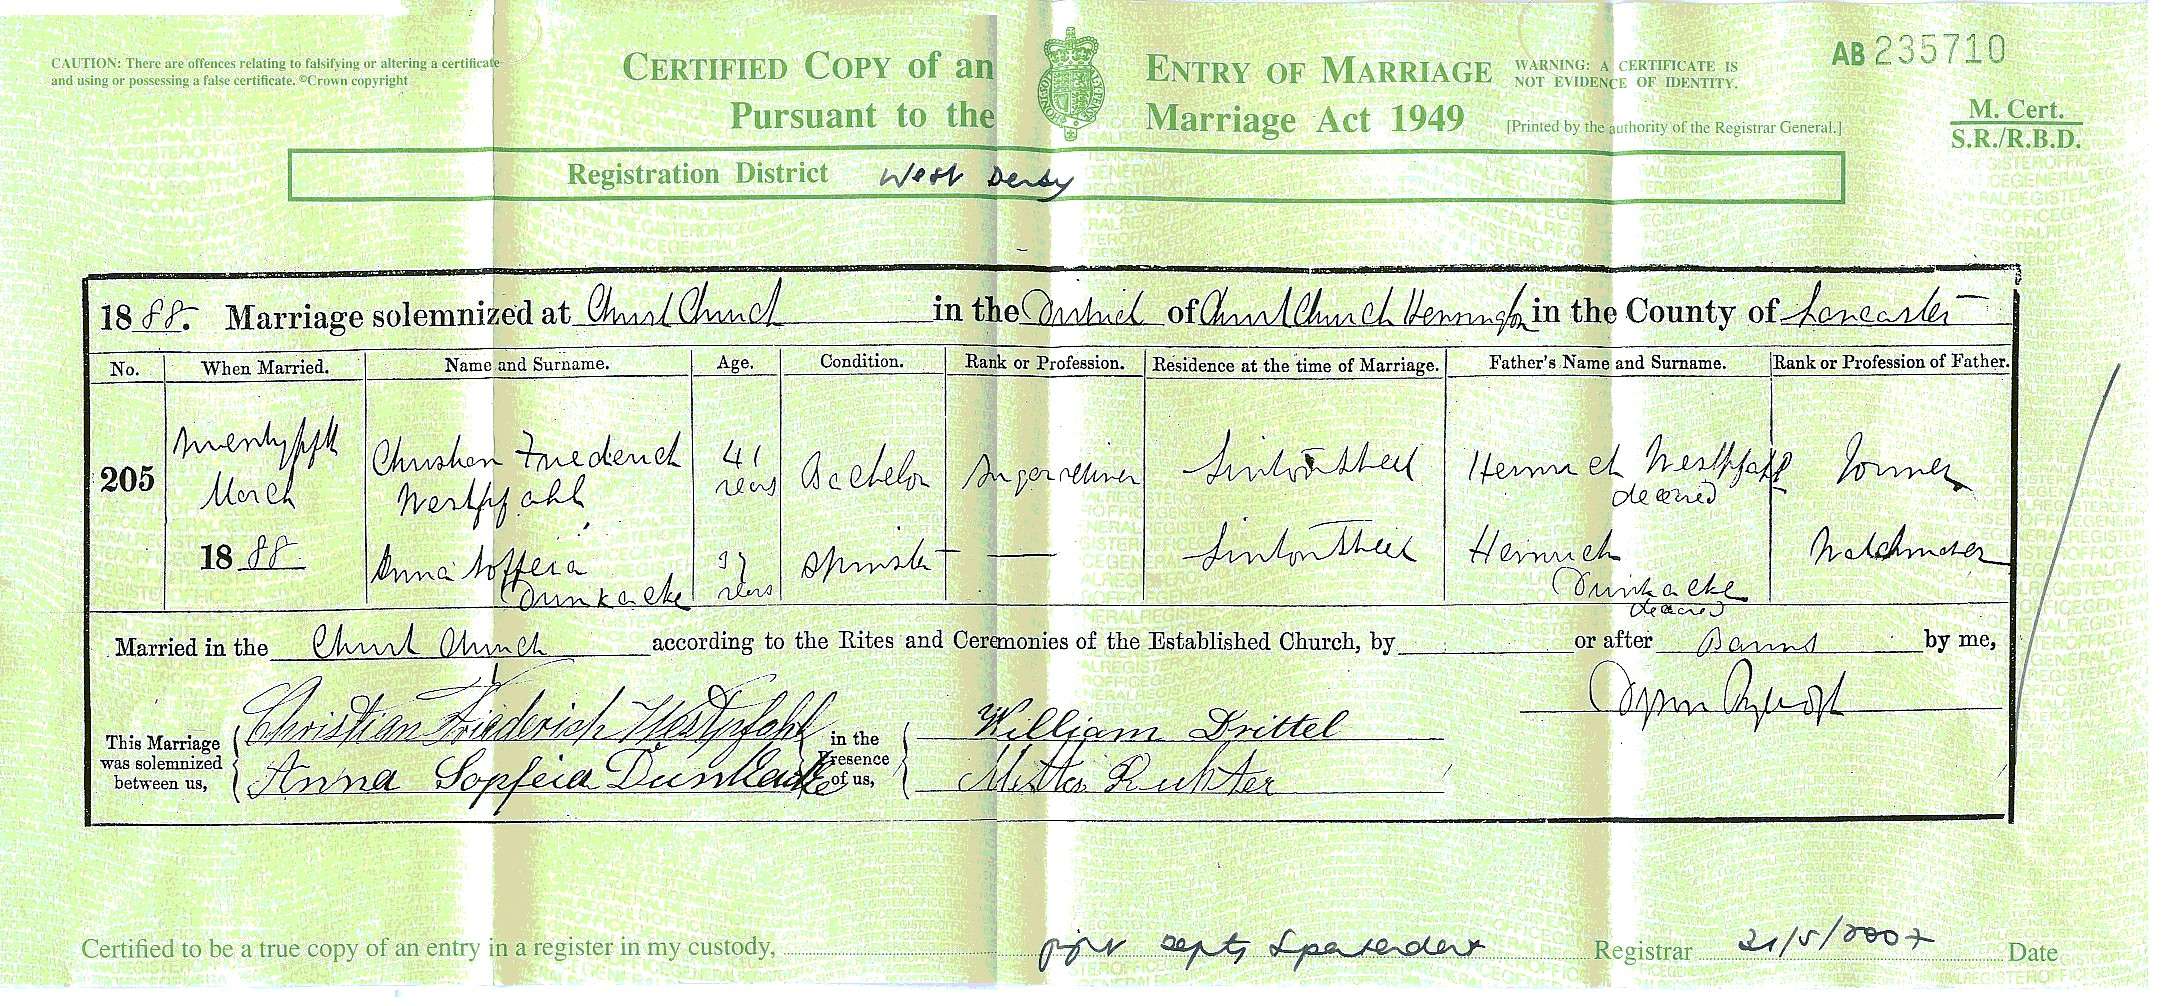 CAUTION: There are offences relating to falsifying or altering a certificate
and using or possessing a false certificate. ©Crown copyright
CERTIFIED COPY of an ENTRY OF MARRIAGE
Pursuant to the Marriage Act 1949
WARNING: A CERTIFICATE IS
NOT EVIDENCE OF IDENTITY.
[Printed by the authority of the Registrar General.]
AB 235710
M. Cert.
S.R./R.B.D.
Registration District West Derby
1888. Marriage solemnized at Christ Church in the District of Christ Church Kensington in the County of Lancaster
No. When Married. Name and Surname. Age. Condition. Rank or Profession. Residence at the time of Marriage. Father's Name and Surname. Rank or Profession of Father.
205 Twentyfifth March 1888
Christian Friederich Westpfahl 41 years Bachelor Sugar refiner Linton Street Heinrich Westpfahl deceased
Anna Soffeia Dunkacke 37 years Spinster — Linton Street Heinrich Dunkacke deceased Watchmaker
Married in the Christ Church according to the Rites and Ceremonies of the Established Church, by or after Banns by me,
This Marriage was solemnized between us,
Christian Friederich Westpfahl
Anna Sopfeia Dunkacke
in the Presence of us,
William Drittel
Certified to be a true copy of an entry in a register in my custody, Registrar 31/5/2007 Date